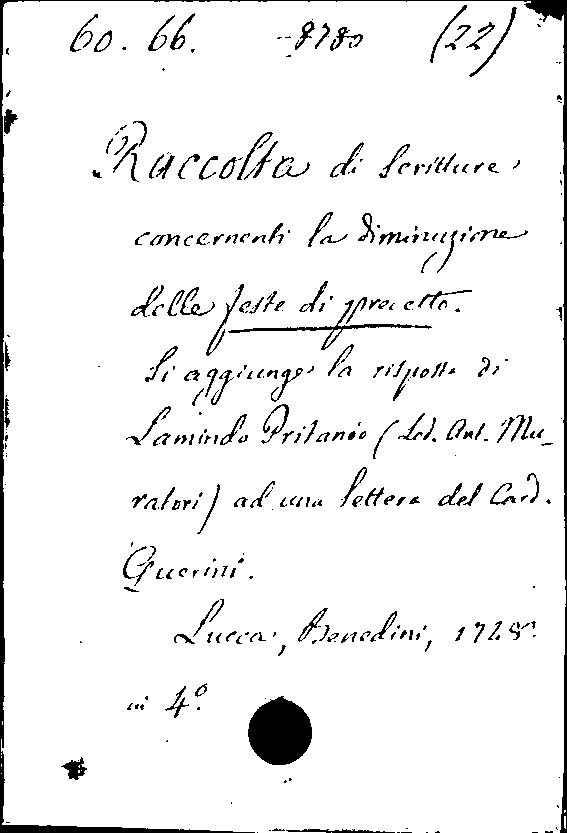 60. 66. -8780 (22)
Raccolta di Scritture
concernenti la diminuzione
delle feste di precetto.
Si aggiunge la risposta di
Lamindo Pritanio (Lod. Ant. Mu-
ratori) ad una lettera del Card.
Querini.
Lucca, Benedini, 1748.
in 4º.